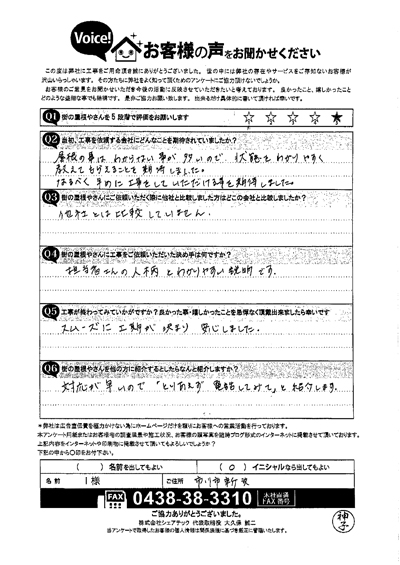 Voice!
お客様の声をお聞かせください
この度は弊社に工事をご用命頂き誠にありがとうございました。世の中には弊社の存在やサービスをご存知ないお客様が
沢山いらっしゃいます。その方たちに弊社をよく知って頂くためのアンケートにご協力頂けないでしょうか。
お客様のご意見をお聞かせいただき今後の活動に反映させていただきたいと考えております。良かったこと、嬉しかったこと
どのような些細な事でも結構です。是非ご協力お願い致します。出来るだけ具体的に書いて頂ければ幸いです。
Q1 街の屋根やさんを5段階で評価をお願いします ☆ ☆ ☆ ☆ ★
Q2 当初、工事を依頼する会社にどんなことを期待されていましたか?
屋根の事は わからない事が 多いので、状態をわかりやすく
教えてもらえることを 期待しました。
なるべく 早めに 工事をしていただける事を期待しました。
Q3 街の屋根やさんにご依頼いただく際に他社と比較しました方はどこの会社と比較しましたか?
他社とは比較していません。
Q4 街の屋根やさんに工事をご依頼いただいた決め手は何ですか?
担当者さんの人柄とわかりやすい説明です。
Q5 工事が終わってみていかがですか?良かった事・嬉しかったことを忌憚なく頂戴出来ましたら幸いです
スムーズに工期が決まり 安心しました。
Q6 街の屋根やさんを他の方に紹介するとしたらなんと紹介しますか?
対応が早いので「とりあえず 電話してみて」と紹介します。
*弊社は広告宣伝費を極力かけない為にホームページだけを頼りにお客様への営業活動を行っております。
本アンケート用紙またはお客様宅の調査風景や施工状況、お客様の顔写真を随時ブログ形式のインターネットに掲載させて頂いております。
上記内容をインターネットや印刷物に掲載させて頂いてもよろしいでしょうか?
下記の中から〇印をお付下さい。
( ) 名前を出してもよい ( ○ ) イニシャルなら出してもよい
名前 I 様 ご住所 市川市新井
FAX 0438-38-3310 本社直通 FAX番号
ご協力ありがとうございました。
株式会社シェアテック 代表取締役 大久保 誠二
当アンケートで取得したお客様の個人情報は関係法規に基づき厳正に管理いたします。
神子